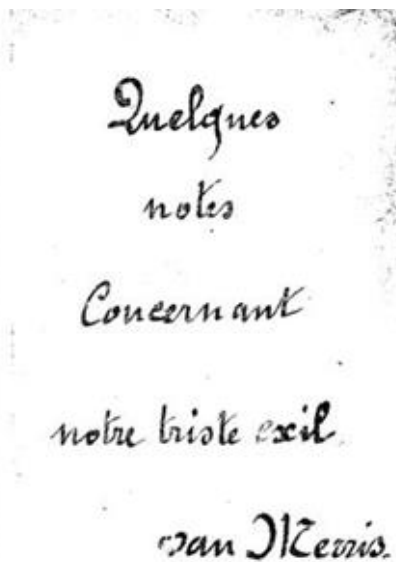 Quelques
notes
Concernant
notre triste exil
van Merris.